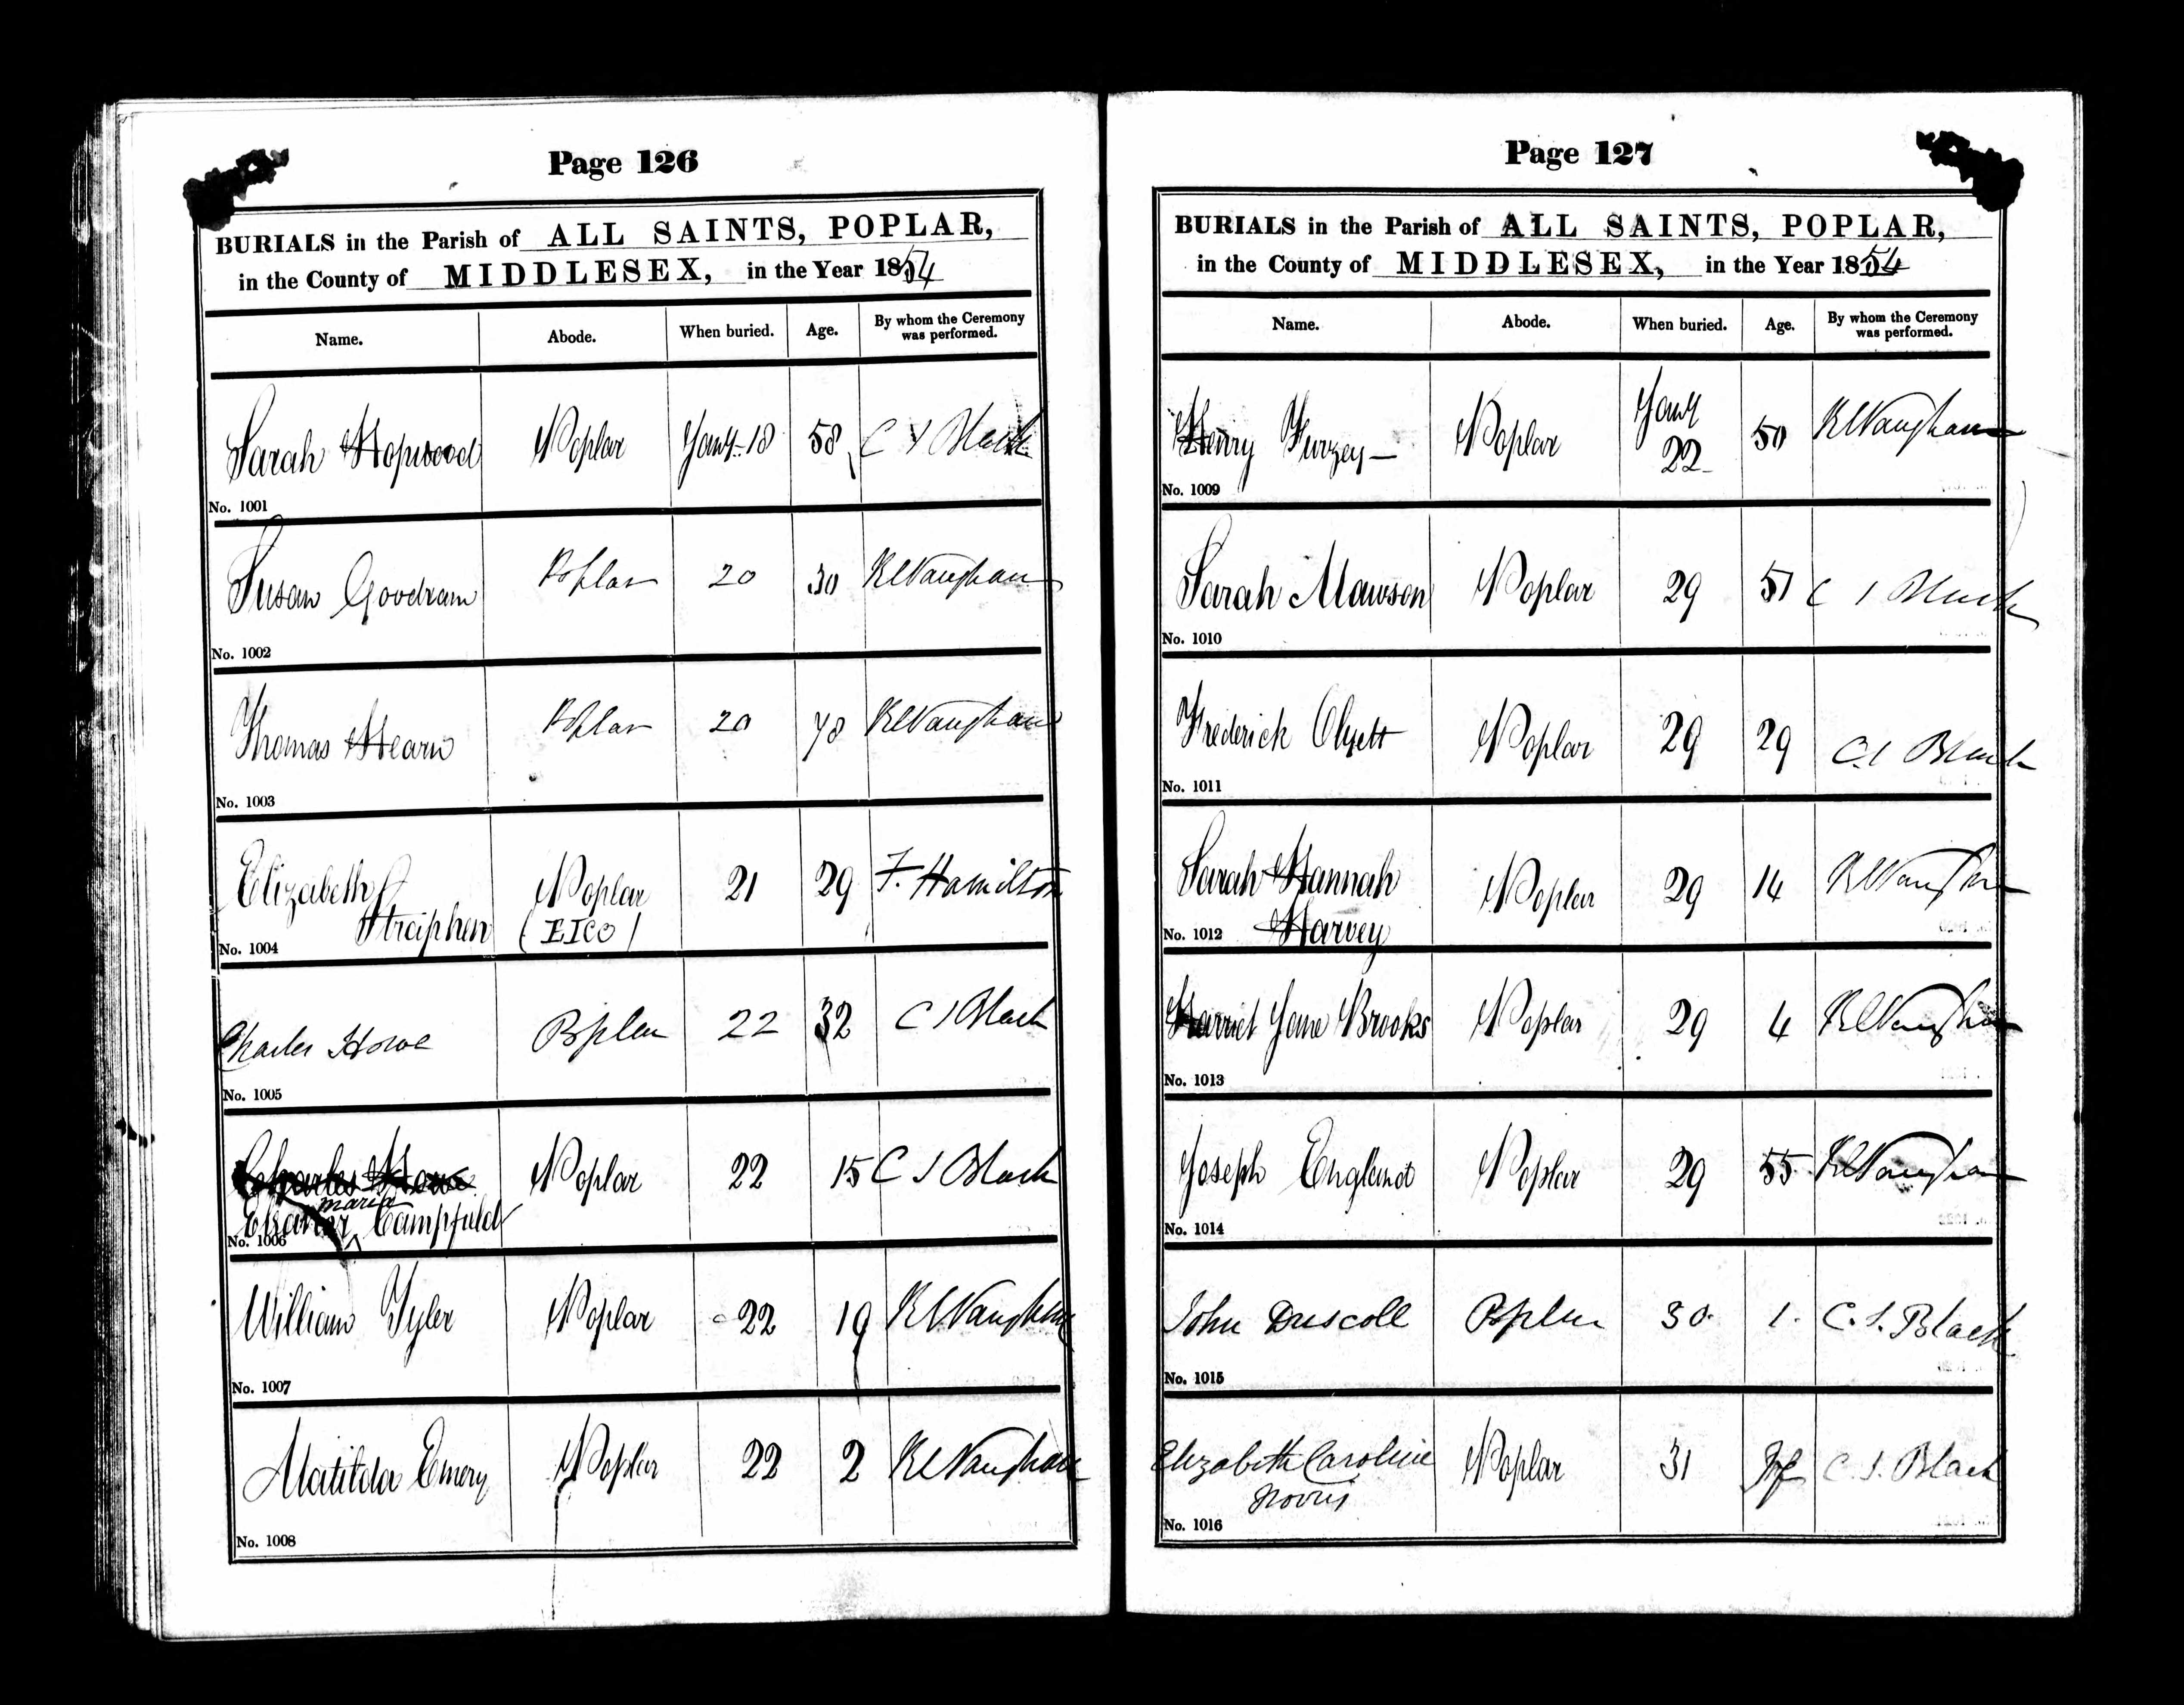 Page 126
BURIALS in the Parish of ALL SAINTS, POPLAR,
in the County of MIDDLESEX, in the Year 1854
Name. Abode. When buried. Age. By whom the Ceremony was performed.
Sarah Hopwood Poplar Jany 18 58 C S Black
No. 1001
Susan Goodram Poplar 20 30 R L Vaughan
No. 1002
Thomas Hearn Poplar 20 78 R L Vaughan
No. 1003
Elizabeth Poplar 21 29 F. Hamilton
Straiphen (EICO)
No. 1004
Charles Howe Poplar 22 32 C S Black
No. 1005
Charles Howe Poplar 22 15 C S Black
maria
Eleanor Campfield
No. 1006
William Tyler Poplar 22 19 R L Vaughan
No. 1007
Matilda Emery Poplar 22 2 R L Vaughan
No. 1008
Page 127
BURIALS in the Parish of ALL SAINTS, POPLAR,
in the County of MIDDLESEX, in the Year 1854
Name. Abode. When buried. Age. By whom the Ceremony was performed.
Henry Furzey Poplar Jany 22 50 R L Vaughan
No. 1009
Sarah Mawson Poplar 29 51 C S Black
No. 1010
Frederick Poplar 29 29 C. S Black
No. 1011
Sarah Hannah Poplar 29 14 R L Vaughan
Harvey
No. 1012
Harriet Jane Brooks Poplar 29 4 R L Vaughan
No. 1013
Joseph England Poplar 29 55 R L Vaughan
No. 1014
John Driscoll Poplar 30. 1. C. S. Black
No. 1015
Elizabeth Caroline Poplar 31 Inf C. S. Black
Norris
No. 1016